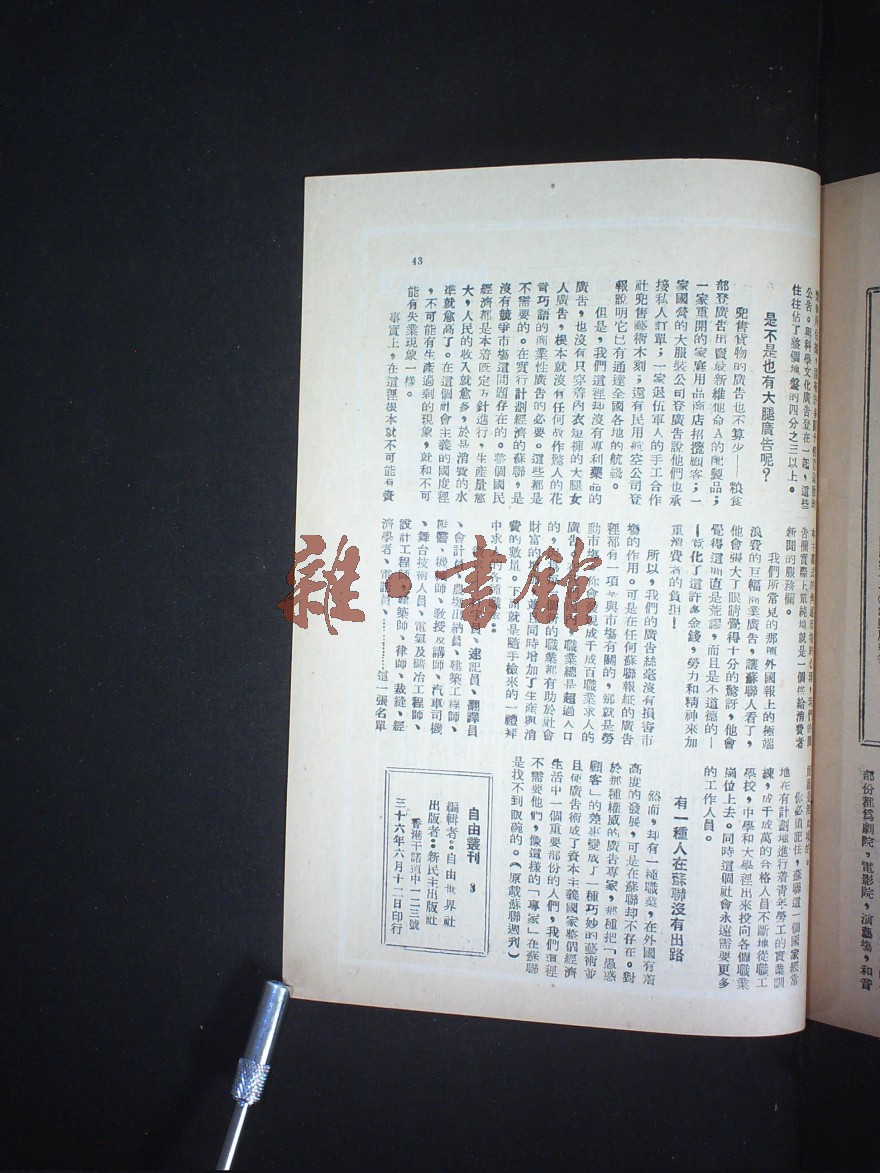 公告。與科學文化廣告登在一起，這些
住往佔了整個地盤的四分之三以上。
是不是也有大腿廣告呢？
兜售貨物的廣告也不算少——粮食
部登廣告出賣最新維他命A的配製品；
一家重開的家庭用品商店招攬顧客；一
家國營的大服裝公司登廣告說他們也承
接私人訂單；一家退伍軍人的手工合作
社兜售藝術木刻；還有民用航空公司登
報說明它已有通達全國各地的航綫。
但是，我們這裡却沒有專利藥品的
廣告，也沒有只穿着內衣短褲的大腿女
人廣告，根本就沒有任何故作驚人的花
言巧語的商業性廣告的必要。這些都是
不需要的。在實行計劃經濟的蘇聯，是
沒有競爭市塲這問題存在的。整個國民
經濟都是本着旣定方針進行，生產量愈
大，人民的收入就愈多，於是消費的水
準就愈高了。在這個社會主義的國度裡
，不可能有生產過剩的現象，就和不可
能有失業現象一樣。
事實上，在這裡根本就不可能有資
告欄實際上單純地就是一個供給消費者
新聞的服務欄。
我們所常見的那種外國報上的極端
浪費的巨幅商業廣告，讓蘇聯人看了，
他會張大了眼睛覺得十分的驚訝，他會
覺得這簡直是荒謬，而且是不道德的—
—竟化了這許多金錢，勞力和精神來加
重消費者的負担！
所以，我們的廣告絲毫沒有損害市
塲的作用。可是在任何蘇聯報紙的廣告
裡都有一項是與市塲有關的，那就是勞
動市塲。你會發現成千成百職業求人的
廣告，職業總是超過人口
的，的職業都有助於社會
財富的並且同時增加了生產與消
費的數量。下面就是隨手檢來的一禮拜
中求人的各種職業：
員、速記員、翻譯員
、會計員、農塲出納員、建築工程師、
醫、機械師、教授及講師、汽車司機
、舞台技術人員、電氣及礦冶工程師、
設計工程師、建築師、律師、裁縫、經
濟學者、電話員、………這一張名單
你必須記住，蘇聯這一個國家經常
地在有計劃地進行着青年勞工的實業訓
練，成千成萬的合格人員不斷地從職工
學校，中學和大學裡出來投向各個職業
崗位上去。同時這個社會永遠需要更多
的工作人員。
有一種人在蘇聯沒有出路
然而，却有一種職業，在外國有着
高度的發展，可是在蘇聯却不存在。對
於那種權威的廣告專家，那種把「愚惑
顧客」的差事變成了一種巧妙的藝術並
且使廣告術成了資本主義國家整個經濟
生活中一個重要部份的人們，我們這裡
不需要他們，像這樣的「專家」在蘇聯
是找不到飯碗的。（原載蘇聯週刋）
自由叢刊 3
編輯者：自由世界社
出版者：新民主出版社
香港干諾道中一二三號
三十六年六月十二日印行
43
部份都爲劇院，電影院，演藝塲，和音
雜·書館